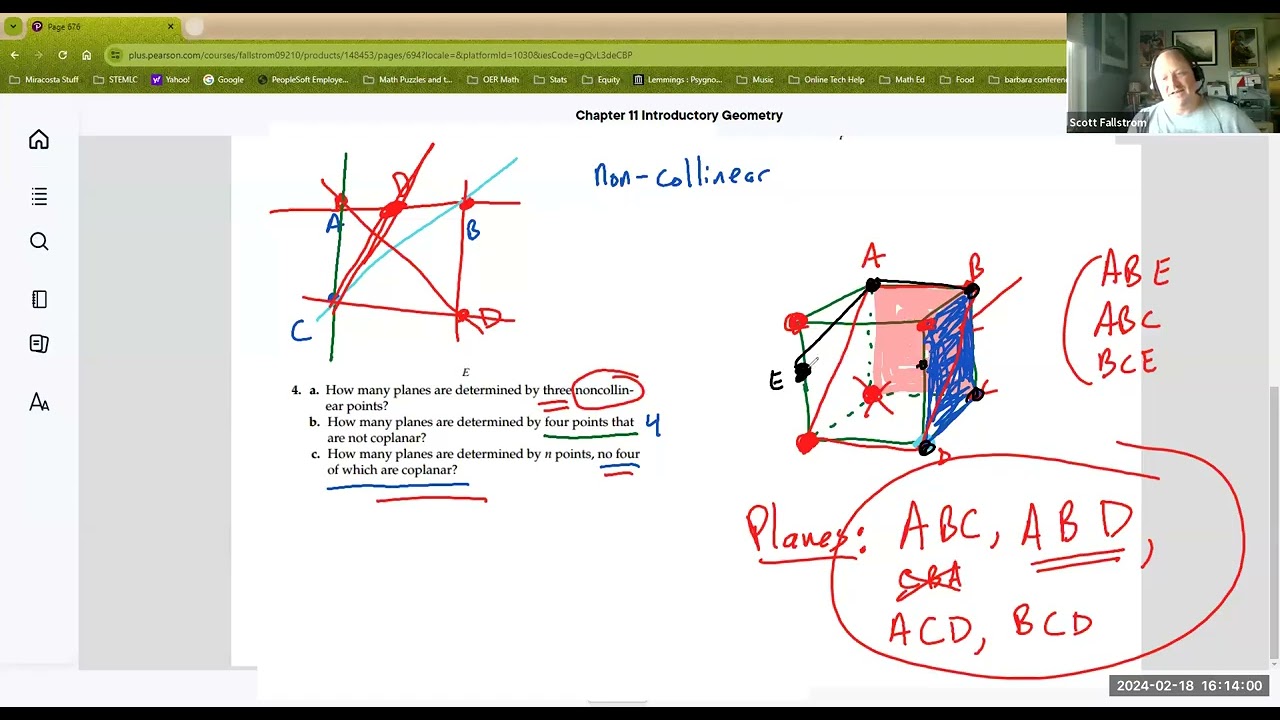 Page 676
plus.pearson.com/courses/fallstrom09210/products/148453/pages/694?locale=&platformId=1030&iesCode=gQvL3deCBP
Miracosta Stuff STEMLC Yahoo! Google PeopleSoft Employe... Math Puzzles and t... OER Math Stats Equity Lemmings : Psygno... Music Online Tech Help Math Ed Food barbara conference
Scott Fallstrom
Chapter 11 Introductory Geometry
non-collinear
D
A
B
C
D
A
B
E
C
D
ABE
ABC
BCE
E
4. a. How many planes are determined by three noncollin-
ear points?
b. How many planes are determined by four points that 4
are not coplanar?
c. How many planes are determined by n points, no four
of which are coplanar?
Planes: ABC, ABD,
CBA
ACD, BCD
2024-02-18 16:14:00